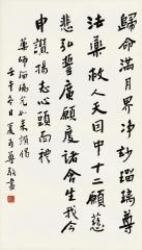 歸命滿月界淨妙瑠璃尊
法藥救人天因中十二願慈
悲弘誓廣願度諸含生我今
申讚揚志心頭面禮
藥師瑠璃光如來讚偈
壬午冬日夏丏尊敬書